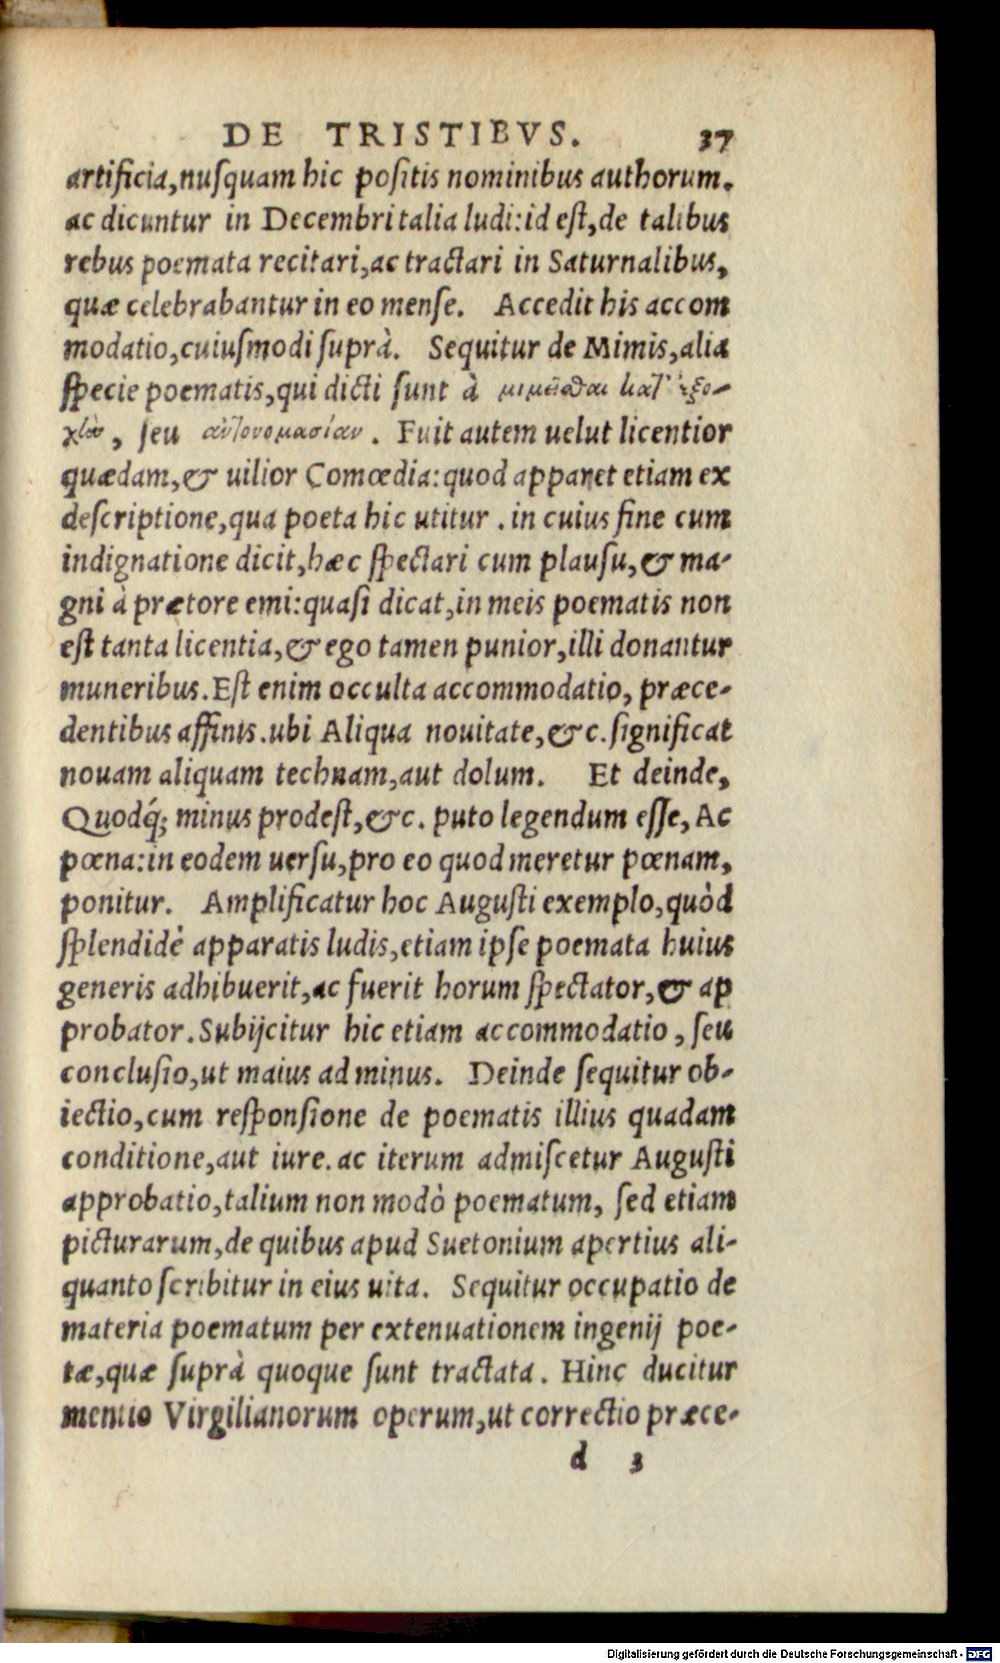 DE TRISTIBVS. 37
artificia,nuſquam hic poſitis nominibus authorum.
ac dicuntur in Decembri talia ludi:id eſt,de talibus
rebus poemata recitari,ac tractari in Saturnalibus,
quæ celebrabantur in eo menſe. Accedit his accom
modatio,cuiuſmodi ſuprà. Sequitur de Mimis,alia
ſpecie poematis,qui dicti ſunt à μιμεῖσθαι κατ' ἐξο-
χὴν, ſeu αὐτονομασίαν. Fuit autem uelut licentior
quædam,& uilior Comœdia:quod apparet etiam ex
deſcriptione,qua poeta hic utitur. in cuius fine cum
indignatione dicit,hæc ſpectari cum plauſu,& ma-
gni à prætore emi:quaſi dicat,in meis poematis non
eſt tanta licentia,& ego tamen punior,illi donantur
muneribus.Eſt enim occulta accommodatio, præce-
dentibus affinis.ubi Aliqua nouitate,&c.ſignificat
nouam aliquam technam,aut dolum. Et deinde,
Quodq́; minus prodeſt,&c. puto legendum eſſe, Ac
pœna:in eodem uerſu,pro eo quod meretur pœnam,
ponitur. Amplificatur hoc Auguſti exemplo,quòd
ſplendidè apparatis ludis,etiam ipſe poemata huius
generis adhibuerit,ac fuerit horum ſpectator,& ap
probator.Subijcitur hic etiam accommodatio, ſeu
concluſio,ut maius ad minus. Deinde ſequitur ob-
iectio,cum reſponſione de poematis illius quadam
conditione,aut iure. ac iterum admiſcetur Auguſti
approbatio,talium non modò poematum, ſed etiam
picturarum,de quibus apud Suetonium apertius ali-
quanto ſcribitur in eius uita. Sequitur occupatio de
materia poematum per extenuationem ingenij poe-
tæ,quæ ſuprà quoque ſunt tractata. Hinc ducitur
mentio Virgilianorum operum,ut correctio præce-
d 3
Digitalisierung gefördert durch die Deutsche Forschungsgemeinschaft - DFG